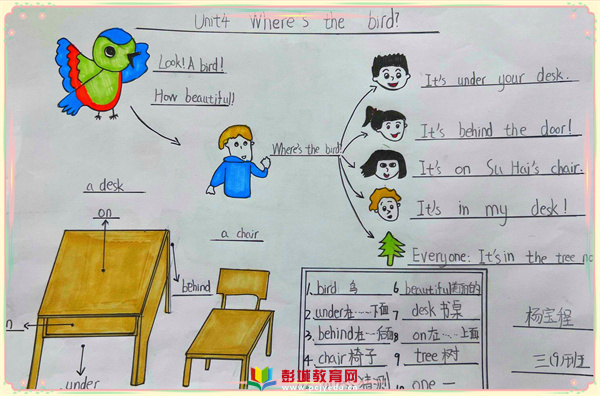 Unit4 Where's the bird?
Look! A bird!
How beautiful!
Where's the bird?
It's under your desk.
It's behind the door!
It's on Su Hai's chair.
It's in my desk!
Everyone: It's in the tree
a desk
on
a chair
behind
under
1. bird 鸟
2. under 在…下面
3. behind 在…后面
4. chair 椅子
6. beautiful
7. desk 书桌
8. on 在…上面
9. tree 树
10. one 一
杨宝程
三(9)班
彭城教育网
www.pcjyedu.cn